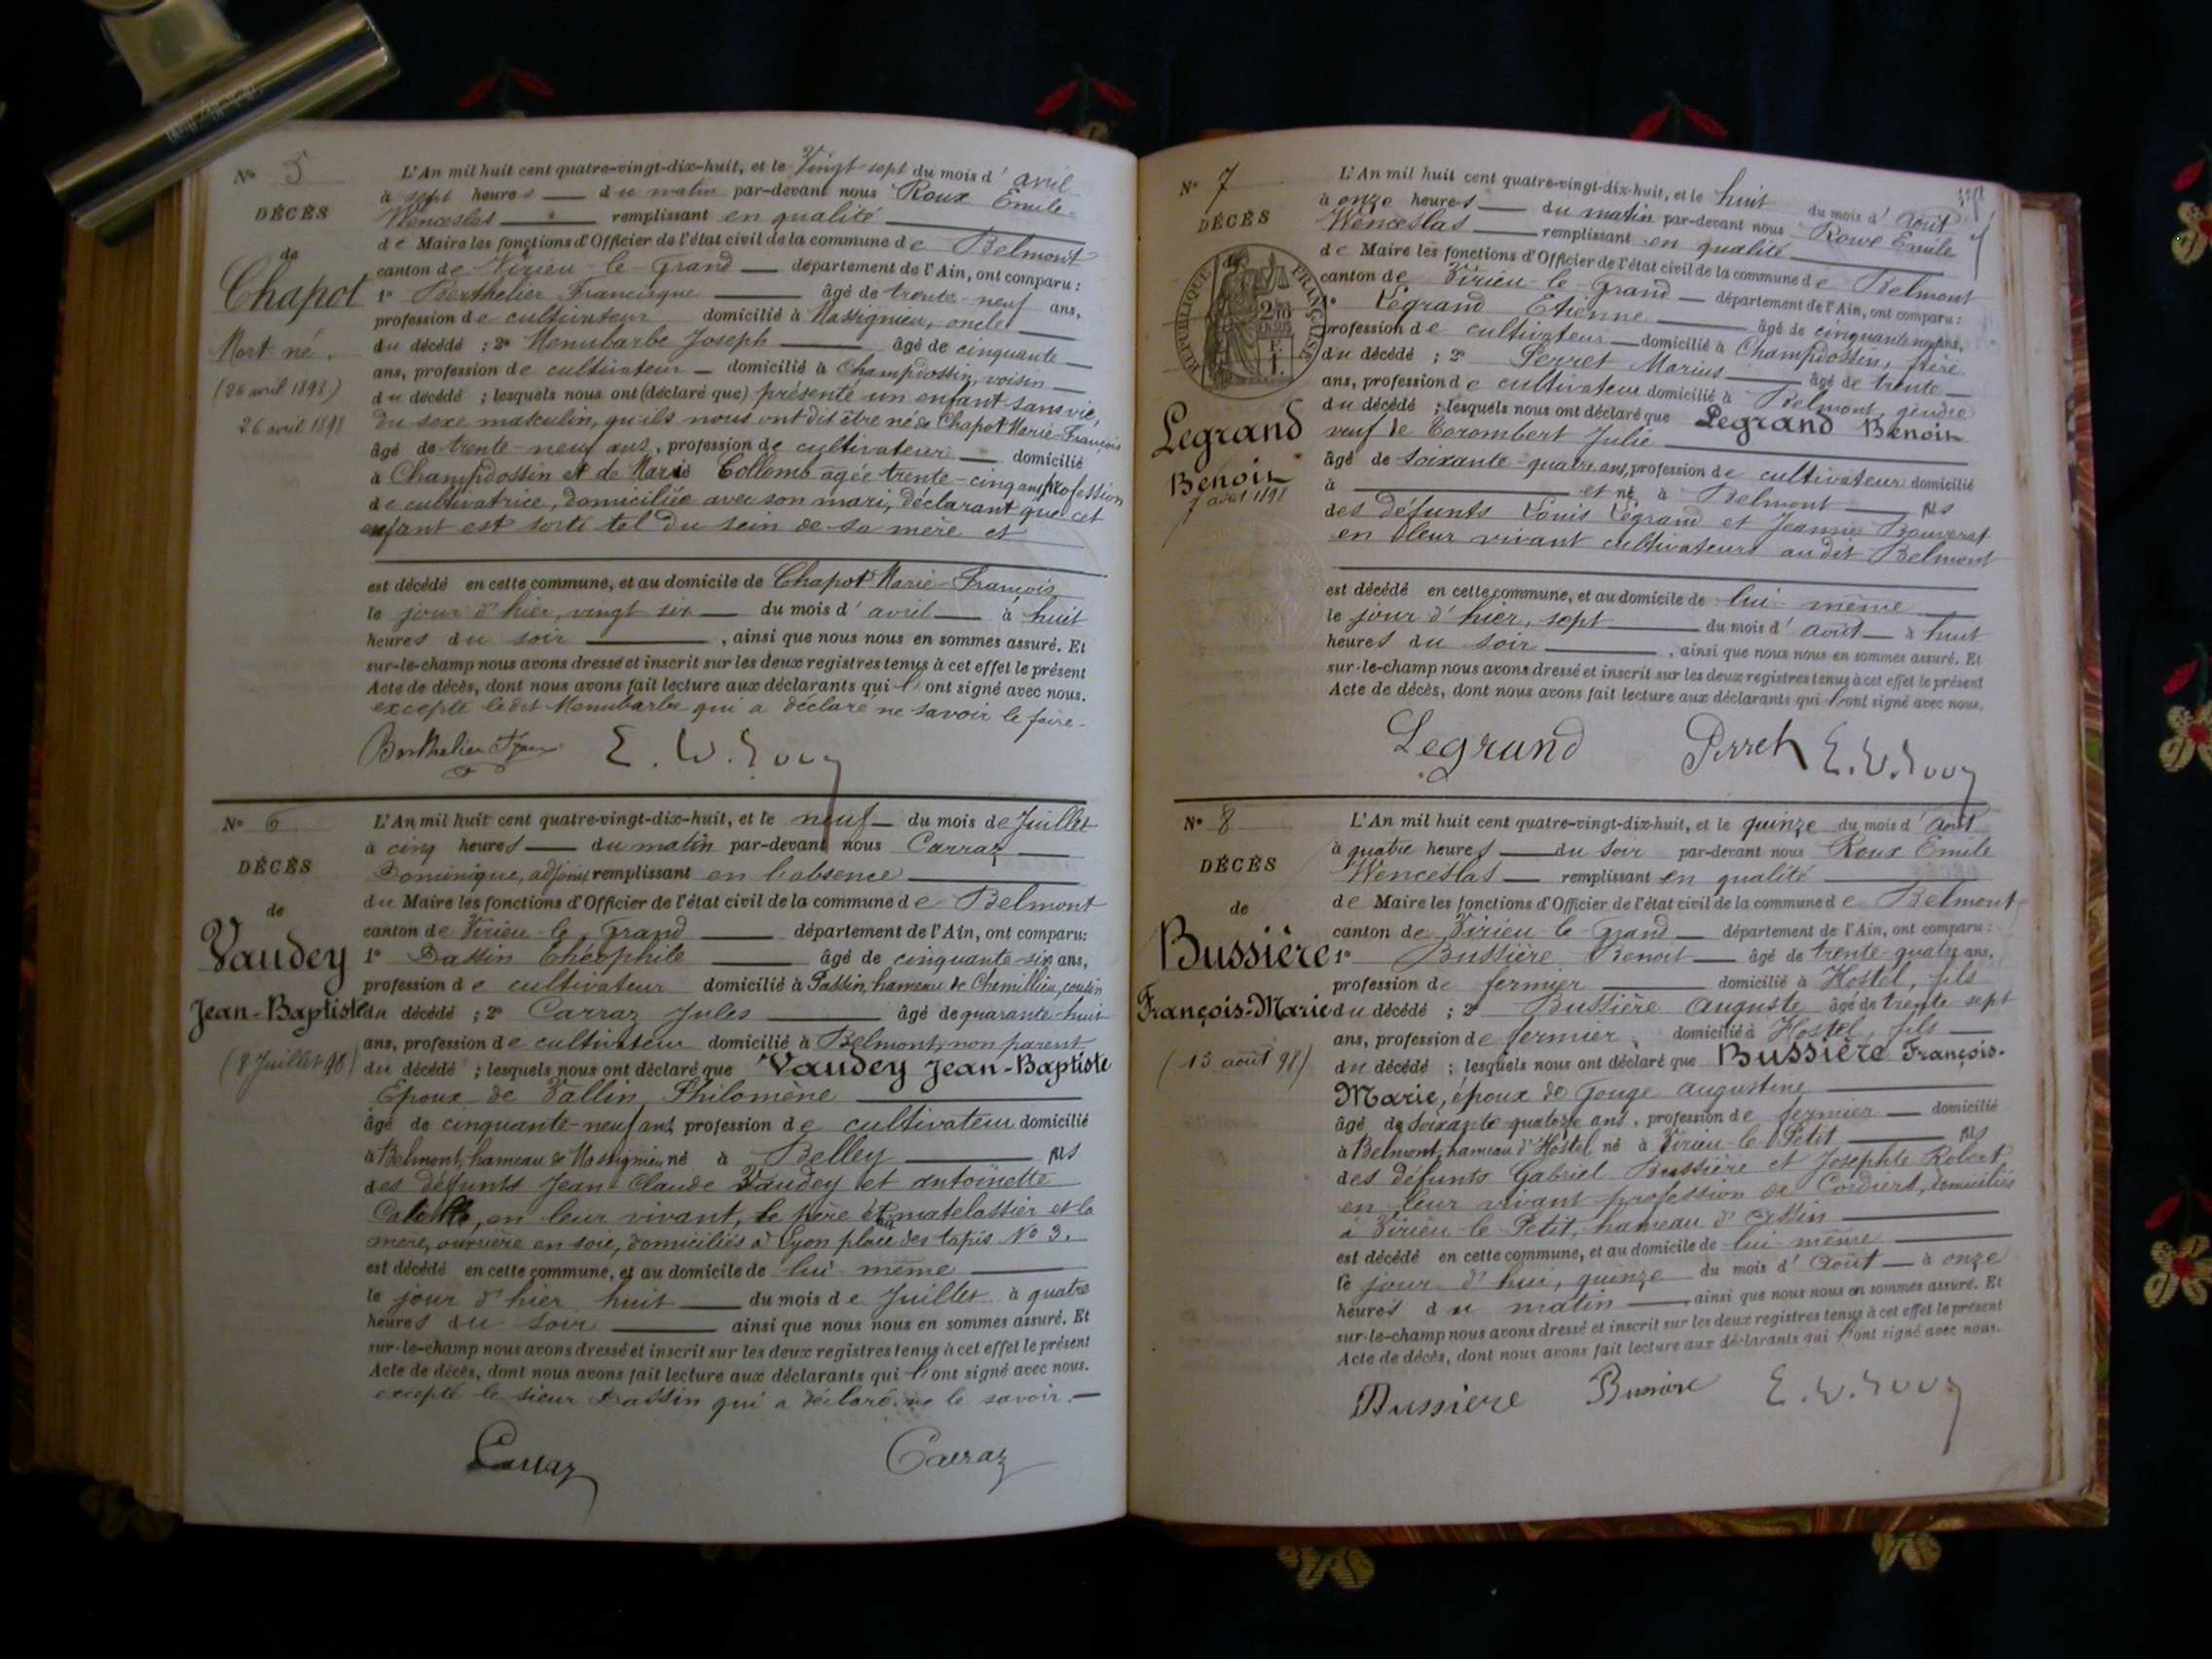 N° 5
DÉCÈS
de
Chapot
Mort né.
(26 avril 1898)
26 avril 1898
L'An mil huit cent quatre-vingt-dix-huit, et le Vingt sept du mois d' avril
à sept heures du matin par-devant nous Roux Emile
Wenceslas remplissant en qualité
de Maire les fonctions d'Officier de l'état civil de la commune de Belmont
canton de Virieu-le-Grand département de l'Ain, ont comparu :
1° Berthelier Francisque âgé de trente-neuf ans,
profession de cultivateur domicilié à Massignieu, oncle
du décédé ; 2° Menubarbe Joseph âgé de cinquante
ans, profession de cultivateur domicilié à Champdossin, voisin
du décédé ; lesquels nous ont (déclaré que) présenté un enfant sans vie,
du sexe masculin, qu'ils nous ont dit être né de Chapot Marie-François
âgé de trente-neuf ans, profession de cultivateur domicilié
à Champdossin et de Marie Collomb agée trente-cinq ans, profession
de cultivatrice, domiciliée avec son mari, déclarant que cet
enfant est sorti tel du sein de sa mère et
est décédé en cette commune, et au domicile de Chapot Marie-François
le jour d'hier, vingt six du mois d' avril à huit
heures du soir, ainsi que nous nous en sommes assuré. Et
sur-le-champ nous avons dressé et inscrit sur les deux registres tenus à cet effet le présent
Acte de décès, dont nous avons fait lecture aux déclarants qui l'ont signé avec nous.
excepté ledit Menubarbe qui a déclaré ne savoir le faire.
Berthelier E. W. Roux
N° 6
DÉCÈS
de
Vaudey
Jean-Baptiste
(8 Juillet 98)
L'An mil huit cent quatre-vingt-dix-huit, et le neuf du mois de Juillet
à cinq heures du matin par-devant nous Carraz
Dominique, adjoint remplissant en l'absence
du Maire les fonctions d'Officier de l'état civil de la commune de Belmont
canton de Virieu-le-Grand département de l'Ain, ont comparu:
1° Dassin Théophile âgé de cinquante-six ans,
profession de cultivateur domicilié à Passin, hameau de Chemillieu, cousin
du décédé ; 2° Carraz Jules âgé de quarante-huit
ans, profession de cultivateur domicilié à Belmont, non parent
du décédé ; lesquels nous ont déclaré que Vaudey Jean-Baptiste
Epoux de Vallin Philomène
âgé de cinquante-neuf ans profession de cultivateur domicilié
à Belmont, hameau de Massignieu né à Belley fils
des défunts Jean-Claude Vaudey et Antoinette
en leur vivant, le père matelassier et la
mère, ouvrière en soie, domiciliés à Lyon place des tapis N° 3.
est décédé en cette commune, et au domicile de lui-même
le jour d'hier huit du mois de Juillet à quatre
heures du soir ainsi que nous nous en sommes assuré. Et
sur-le-champ nous avons dressé et inscrit sur les deux registres tenus à cet effet le présent
Acte de décès, dont nous avons fait lecture aux déclarants qui l'ont signé avec nous.
excepté le sieur Dassin qui a déclaré ne le savoir.
Carraz Carraz
N° 7
DÉCÈS
de
RÉPUBLIQUE FRANÇAISE
Legrand
Benoit
7 août 1898
L'An mil huit cent quatre-vingt-dix-huit, et le huit du mois d' Août
à onze heures du matin par-devant nous Roux Emile
Wenceslas remplissant en qualité
de Maire les fonctions d'Officier de l'état civil de la commune de Belmont
canton de Virieu-le-Grand département de l'Ain, ont comparu :
1° Legrand Etienne âgé de cinquante neuf ans,
profession de cultivateur domicilié à Champdossin, frère
du décédé ; 2° Perret Marius âgé de trente
ans, profession de cultivateur domicilié à Belmont, gendre
du décédé ; lesquels nous ont déclaré que Legrand Benoit
veuf de Corombert Julie
âgé de soixante-quatre ans, profession de cultivateur domicilié
à et né à Belmont fils
des défunts Louis Legrand et Jeanne Bouverat
en leur vivant cultivateurs audit Belmont
est décédé en cette commune, et au domicile de lui-même
le jour d'hier, sept du mois d' août à huit
heures du soir, ainsi que nous nous en sommes assuré. Et
sur-le-champ nous avons dressé et inscrit sur les deux registres tenus à cet effet le présent
Acte de décès, dont nous avons fait lecture aux déclarants qui l'ont signé avec nous.
Legrand Perret E. W. Roux
N° 8
DÉCÈS
de
Bussière
François-Marie
(15 août 98)
L'An mil huit cent quatre-vingt-dix-huit, et le quinze du mois d' Août
à quatre heures du soir par-devant nous Roux Emile
Wenceslas remplissant en qualité
de Maire les fonctions d'Officier de l'état civil de la commune de Belmont
canton de Virieu-le-Grand département de l'Ain, ont comparu :
1° Bussière Benoit âgé de trente-quatre ans,
profession de fermier domicilié à Hostel, fils
du décédé ; 2° Bussière Auguste âgé de trente-sept
ans, profession de fermier, domicilié à Hostel, fils
du décédé ; lesquels nous ont déclaré que Bussière François-
Marie, époux de Gouge Augustine
âgé de soixante quatorze ans, profession de fermier domicilié
à Belmont, hameau d'Hostel né à Virieu-le-Petit fils
des défunts Gabriel Bussière et Josephte Robert
en leur vivant profession de Cordiers, domiciliés
à Virieu-le-Petit, hameau d'Assin
est décédé en cette commune, et au domicile de lui-même
le jour d'hui, quinze du mois d' Août à onze
heures du matin, ainsi que nous nous en sommes assuré. Et
sur-le-champ nous avons dressé et inscrit sur les deux registres tenus à cet effet le présent
Acte de décès, dont nous avons fait lecture aux déclarants qui l'ont signé avec nous.
Bussiere Bussière E. W. Roux